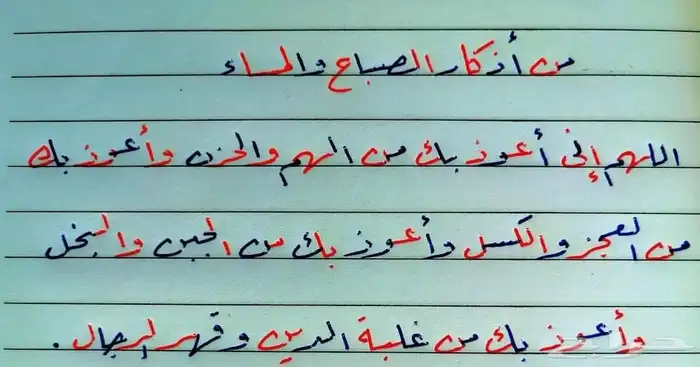 من أذكار الصباح والمساء
اللهم إني أعوذ بك من الهم والحزن وأعوذ بك
من العجز والكسل وأعوذ بك من الجبن والبخل
وأعوذ بك من غلبة الدين وقهر الرجال .